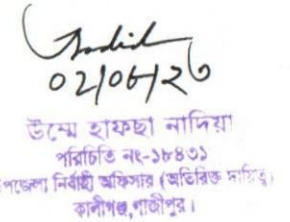 ০২/০৮/২৩
উম্মে হাফছা নাদিয়া
পরিচিতি নং-১৮৪৩১
উপজেলা নির্বাহী অফিসার (অতিরিক্ত দায়িত্ব)
কালীগঞ্জ,গাজীপুর।